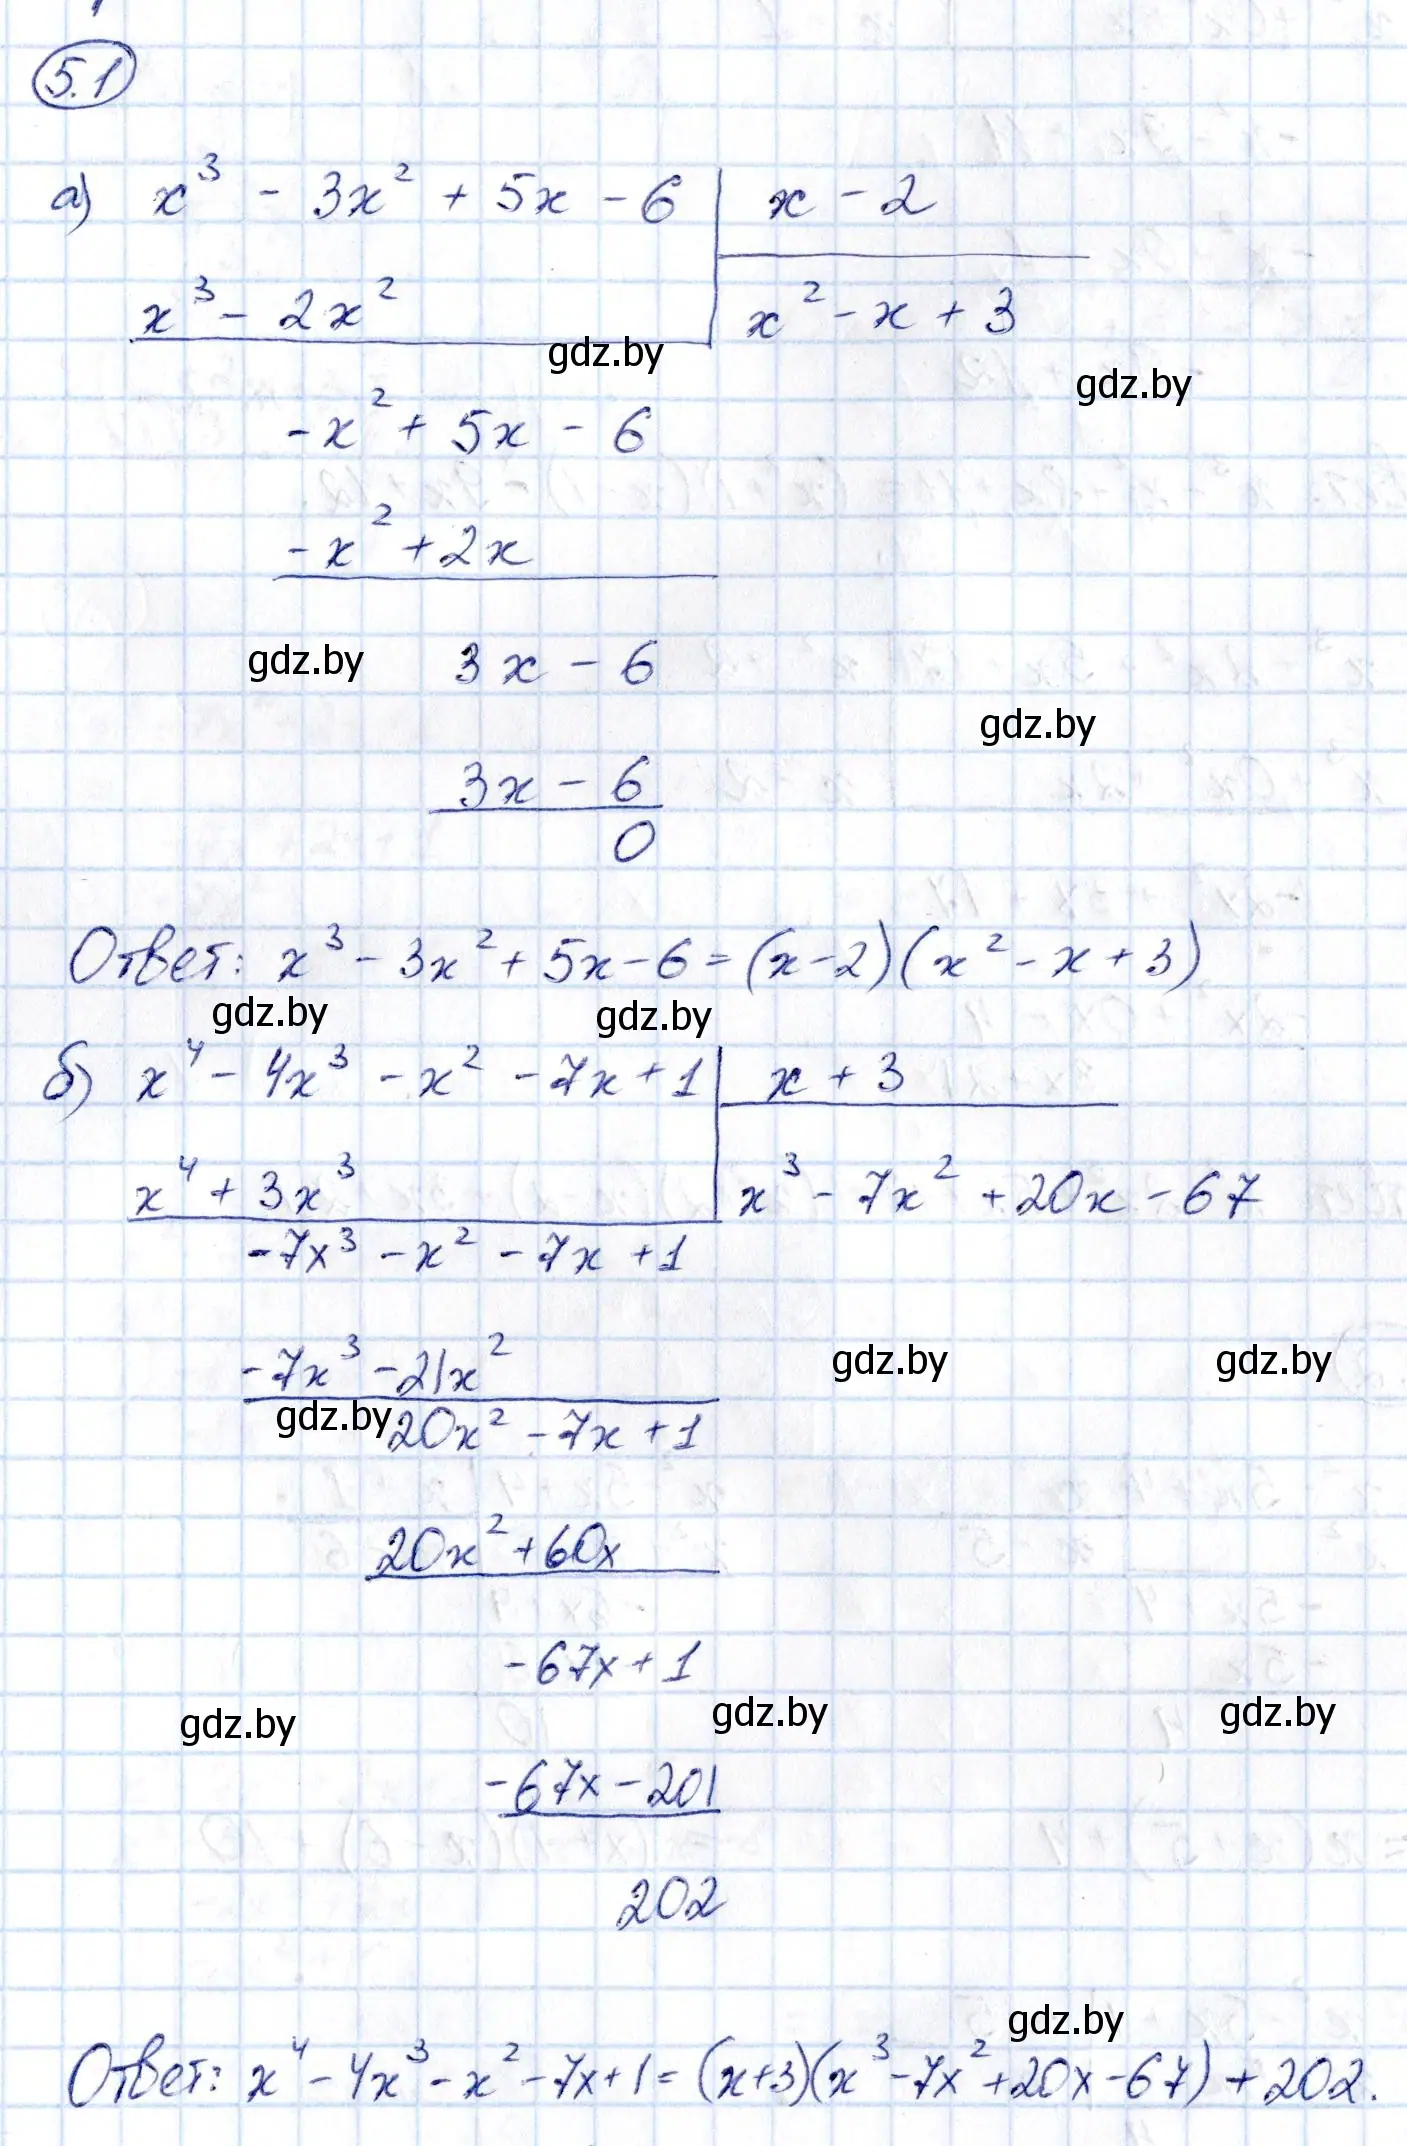 5.1
а) x³ - 3x² + 5x - 6 | x - 2
x³ - 2x² | x² - x + 3
gdz.by
gdz.by
-x² + 5x - 6
-x² + 2x
gdz.by 3x - 6
gdz.by
3x - 6
0
Ответ: x³ - 3x² + 5x - 6 = (x - 2)(x² - x + 3)
gdz.by gdz.by
б) x⁴ - 4x³ - x² - 7x + 1 | x + 3
x⁴ + 3x³ | x³ - 7x² + 20x - 67
-7x³ - x² - 7x + 1
-7x³ - 21x² gdz.by gdz.by
gdz.by 20x² - 7x + 1
20x² + 60x
-67x + 1
gdz.by gdz.by gdz.by
-67x - 201
202
gdz.by
Ответ: x⁴ - 4x³ - x² - 7x + 1 = (x+3)(x³ - 7x² + 20x - 67) + 202.